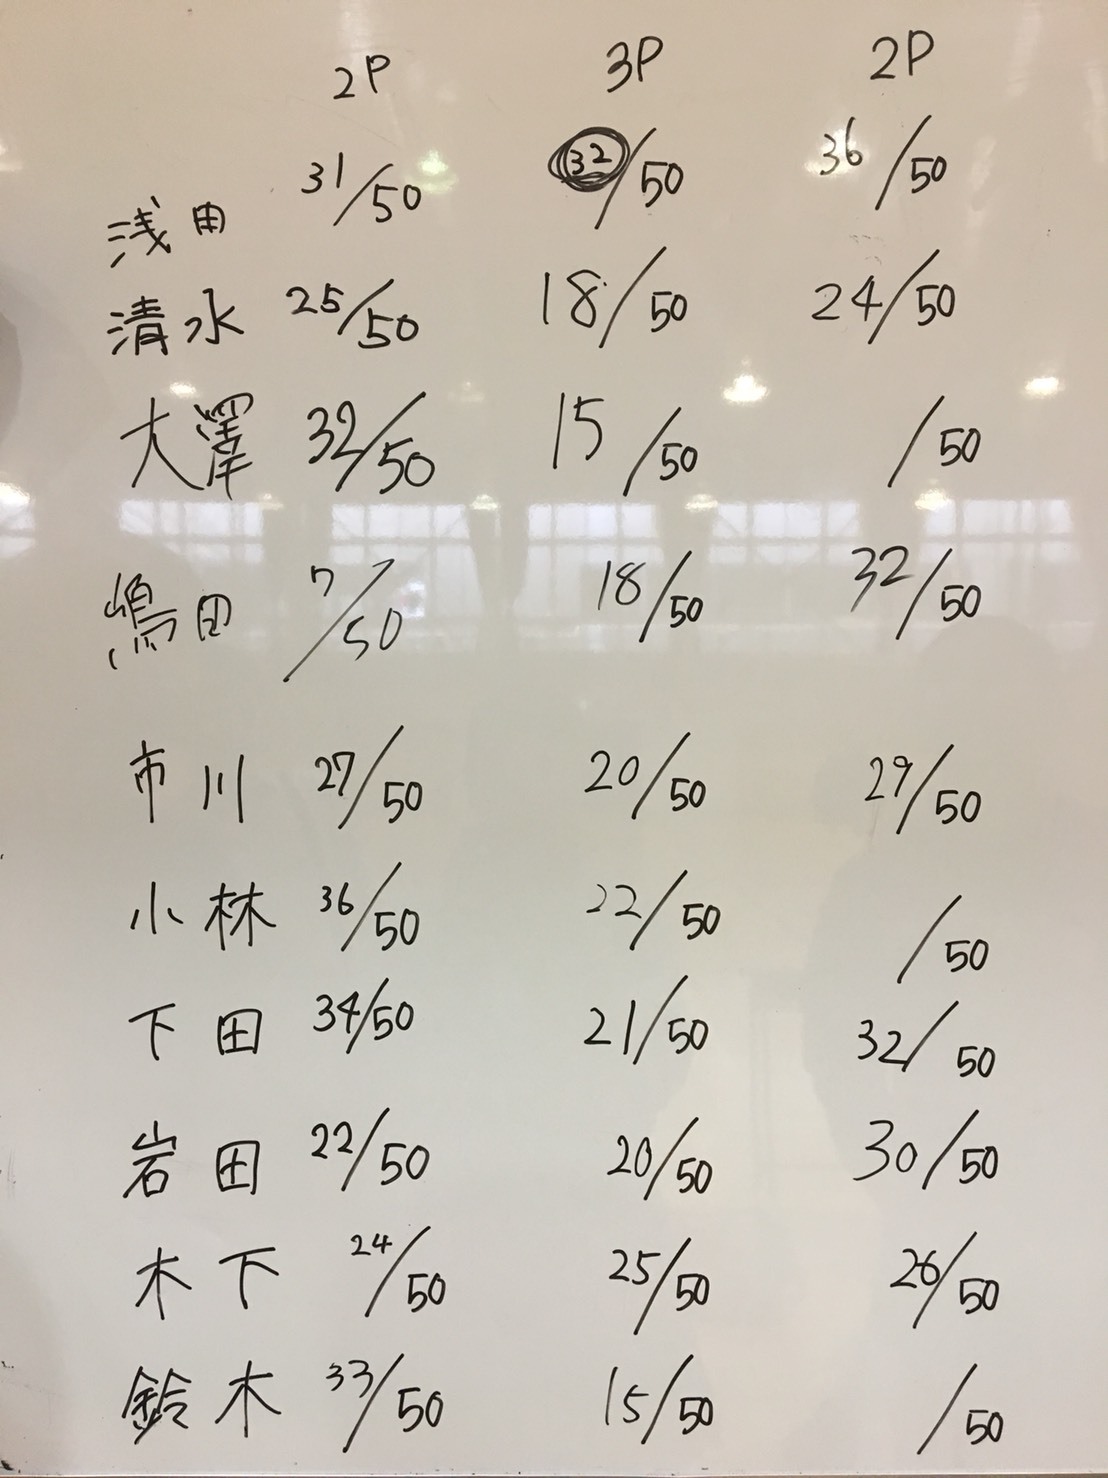 2P 3P 2P
浅田 31/50 32/50 36/50
清水 25/50 18/50 24/50
大澤 32/50 15/50 /50
嶋田 7/50 18/50 32/50
市川 27/50 20/50 29/50
小林 36/50 22/50 /50
下田 34/50 21/50 32/50
岩田 22/50 20/50 30/50
木下 24/50 25/50 26/50
鈴木 33/50 15/50 /50